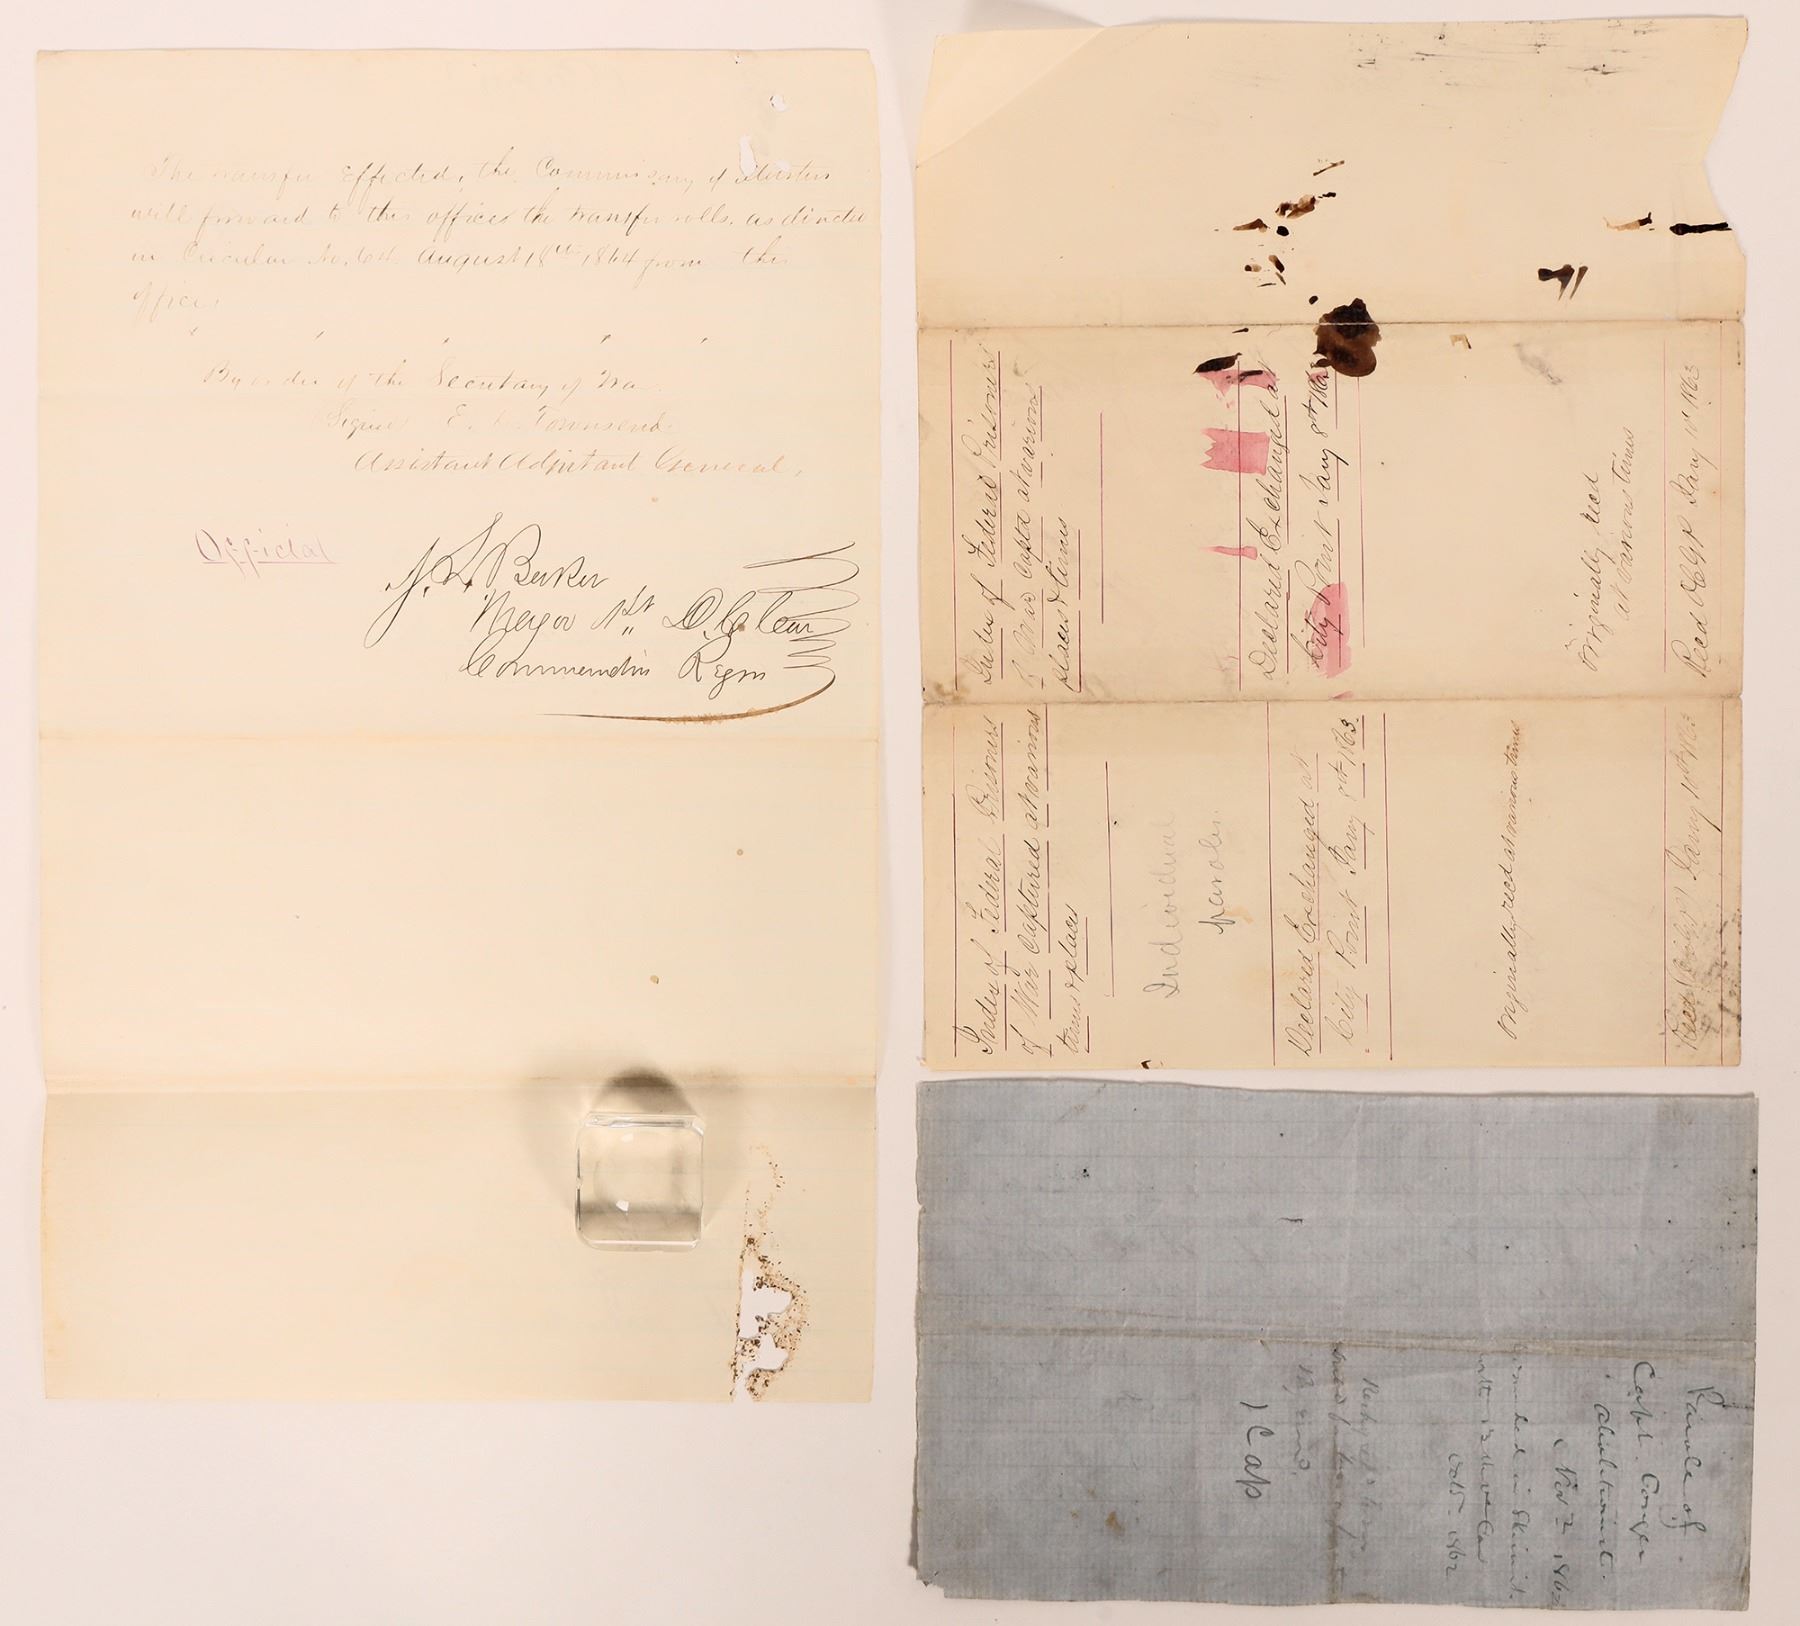 The transfer Effected, the Commissary of Musters
will forward to this office, the transfer rolls, as directed
in Circular No. 64. August 18th 1864 from this
office,
By order of the Secretary of War
Signed E. D. Townsend
Assistant Adjutant General,
Official
J. S. Baker
Major 1st D.C. Cav
Commandin Regm
Index of Federal Prisoners
of War Capt'd at various
places & times
Declared Exchanged at
City Point Jany 8th 1863
Originally recd
at various times
Recd Jany 10th 1863
Index of Federal Prisoners
of War Captured at various
times & places
Individual
paroles.
Declared Exchanged at
City Point Jany 8th 1863.
Originally recd at various times
Recd Jany 10th 1863
Parole of
Capt. Conger
Nov 2 1862
wounded in Skirmish
with
Oct 1862
1 Cap